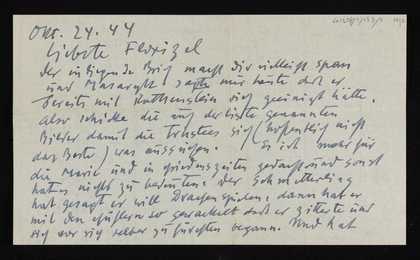 Okt. 24. 44
Liebste Florizel
der inliegende Brief macht dir vielleicht Spass
und Masaryk sagte mir heute dass er
bereits mit Ruthenstein sich geeinigt hätte.
Also schicke die auf der Liste genannten
Bilder damit die Trustees sich (hoffentlich nicht
das Beste) was aussuchen. Es ist mehr für
die Marie und in Friedenszeiten gedacht und sonst
hat es nicht zu bedeuten. Der Schmetterling
hat gesagt er will Drachen spielen, dann hat er
mit den so gerackelt dass er zitterte und
sich vor sich selber zu fürchten begann. Und hat